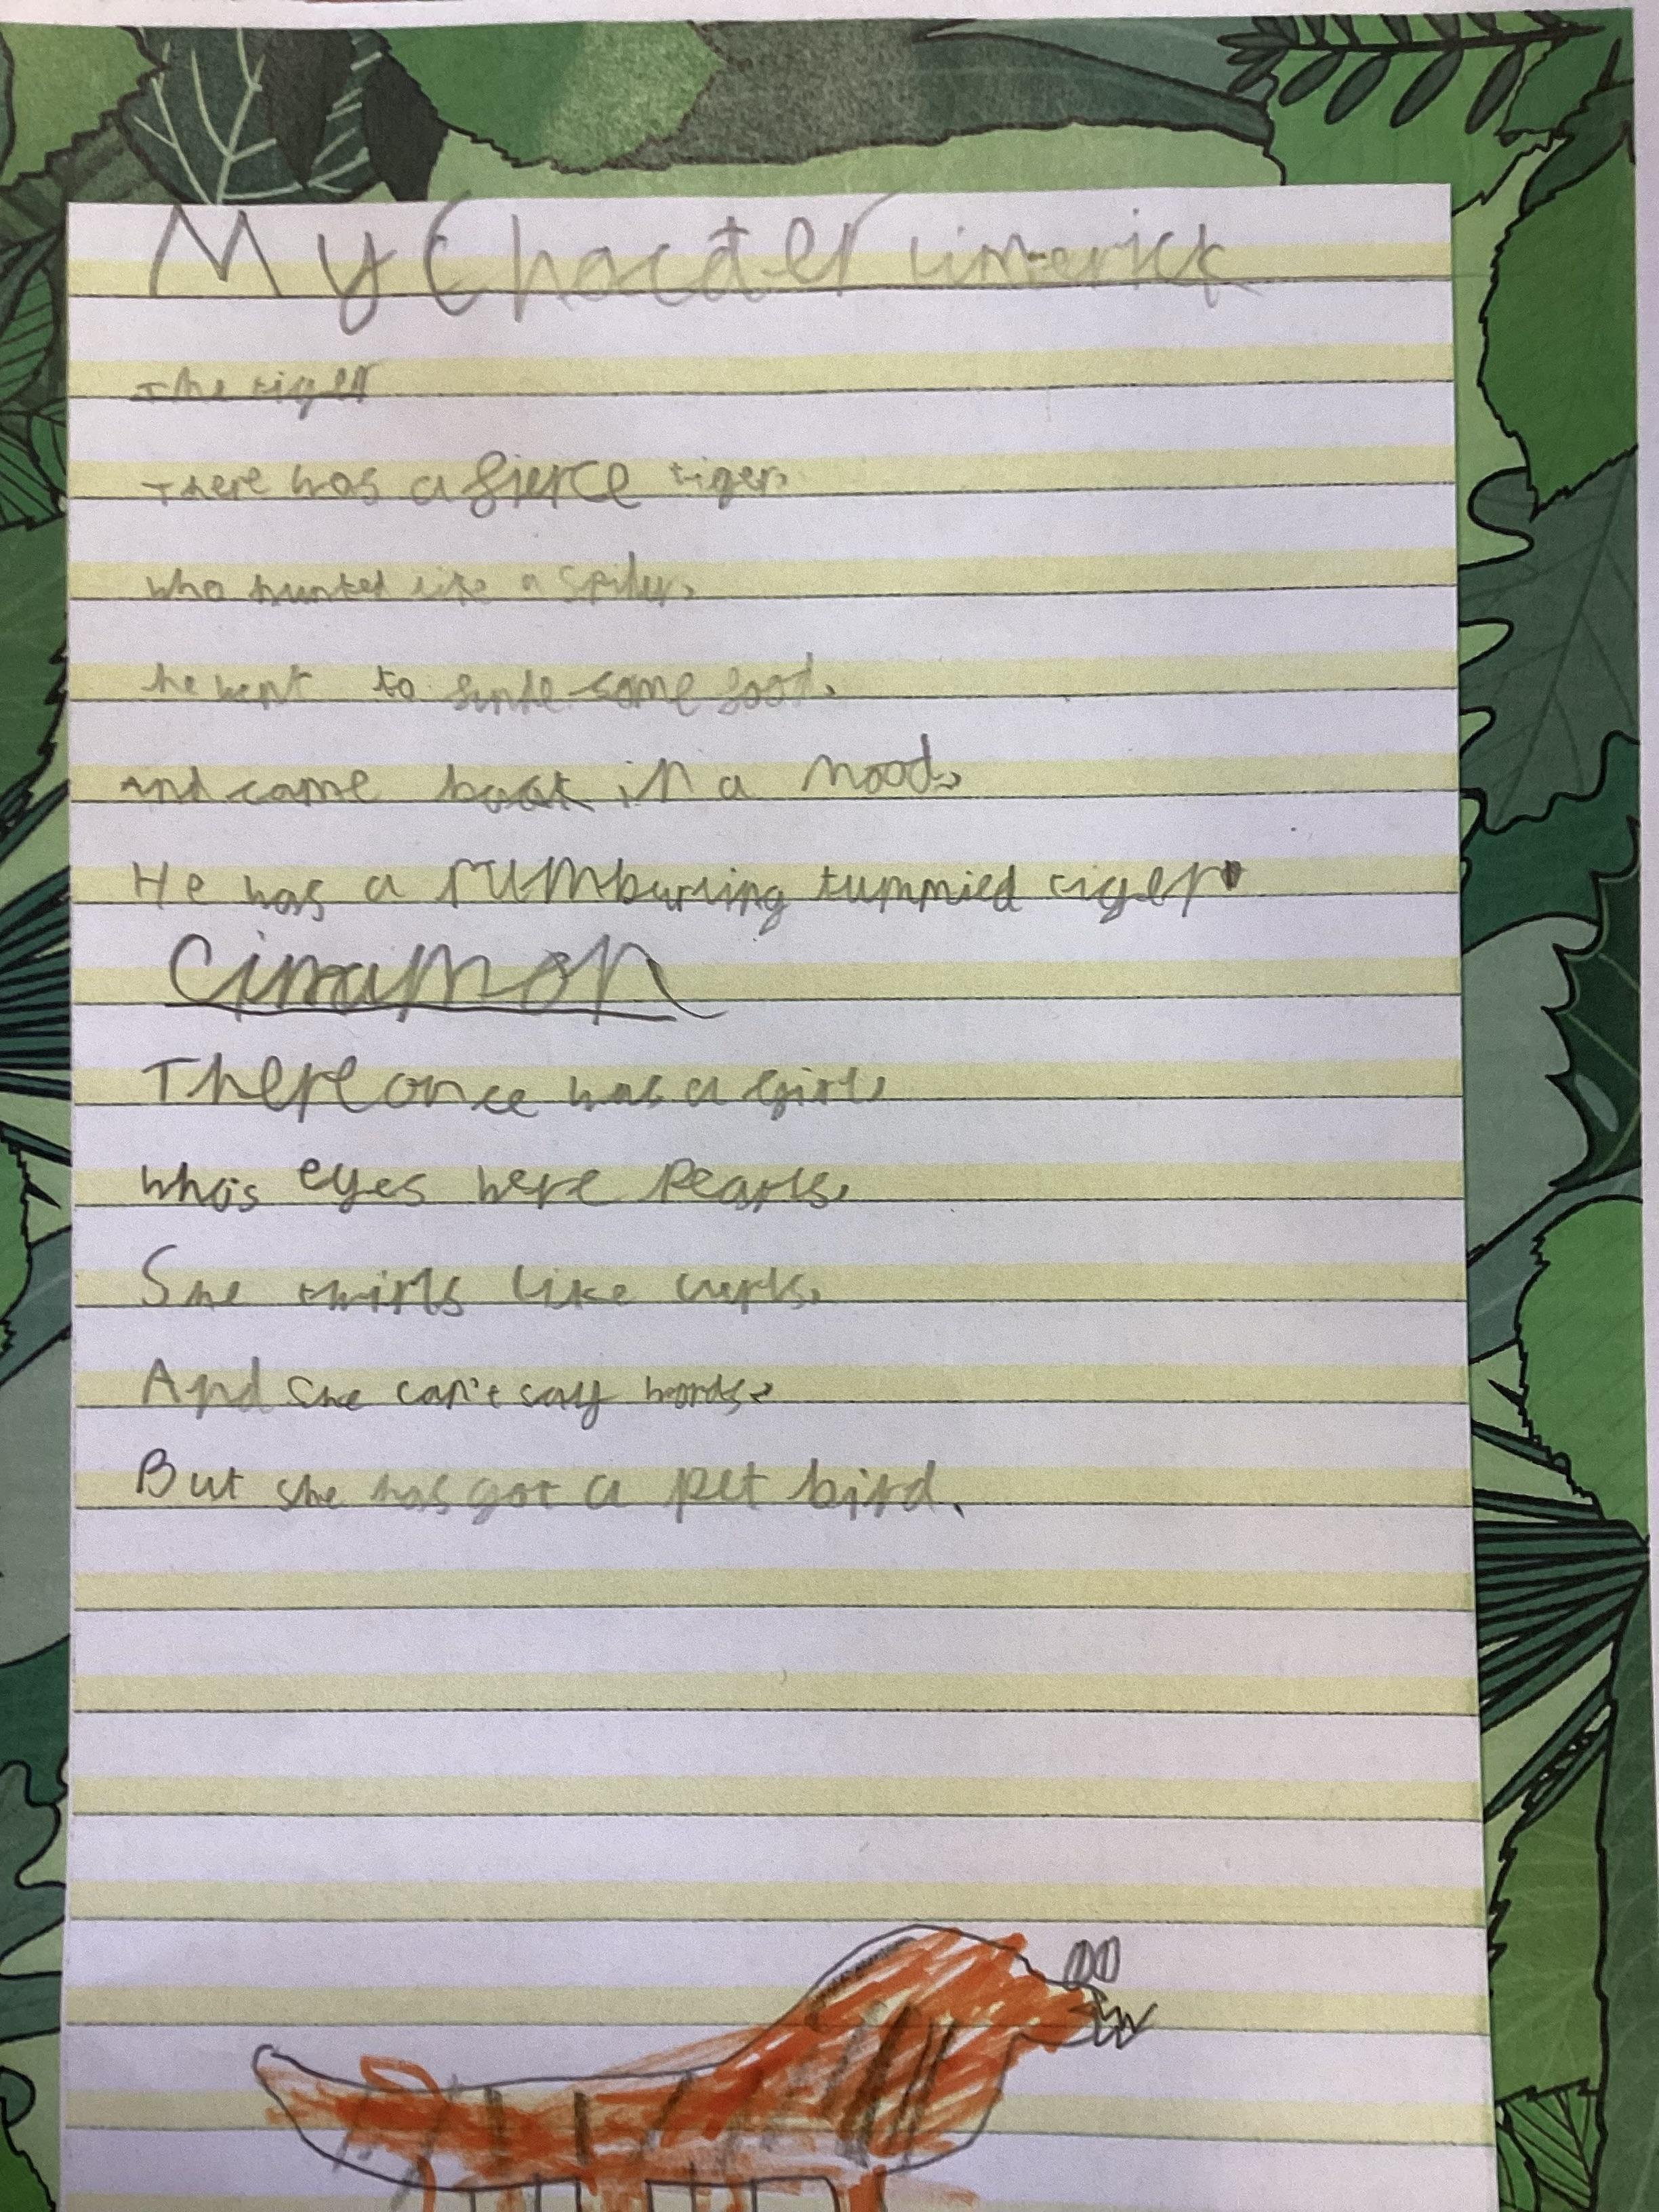 My Chacater Limerick
The tiger
There was a fierce tiger,
who hunted like a spider,
he went to finde some food,
And came back in a mood,
He was a rumburling tummied tiger.
Cinnamon
There once was a girl,
who's eyes were pearls,
She twirls like curls,
And she can't say words,
But she has got a pet bird.